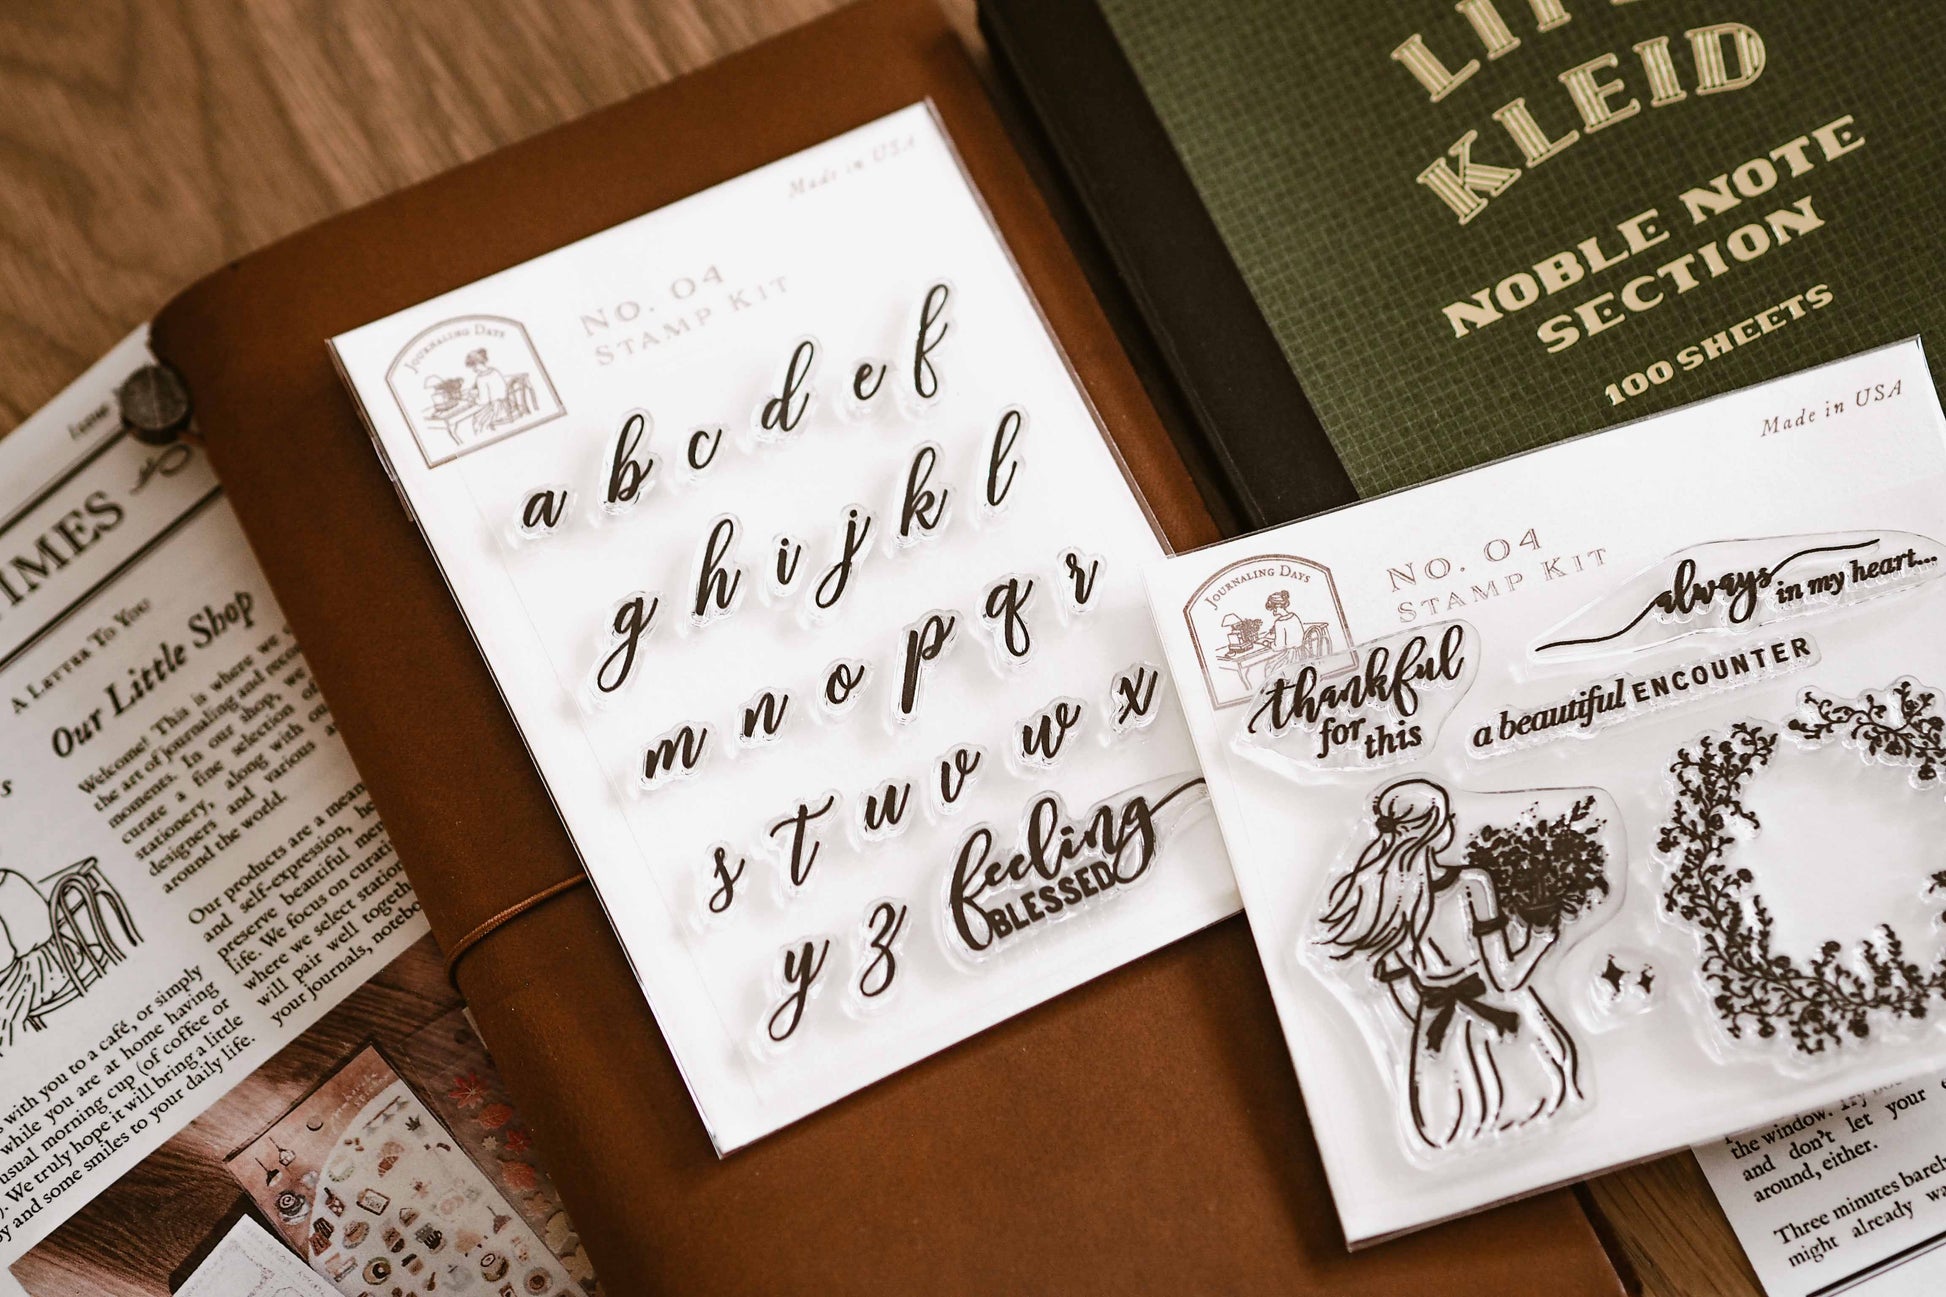 Made in USA
NO. 04
STAMP KIT
JOURNALING DAYS
a b c d e f
g h i j k l
m n o p q r
s t u v w x
y z
feeling
BLESSED
KLEID
NOBLE NOTE
SECTION
100 SHEETS
Made in USA
NO. 04
STAMP KIT
JOURNALING DAYS
always in my heart...
thankful
for this
a beautiful ENCOUNTER
TIMES
A LETTER TO YOU
Our Little Shop
Welcome! This is where we
the art of journaling and
moments. In our shop, we
curate a fine selection of
stationery, along with
designers and various
around the world.
Our products are a
and self-expression,
preserve beautiful
life. We focus on
where we select
will pair well
your journals,
with you to a café, or simply
while you are at home having
usual morning cup (of coffee or
We truly hope it will bring a little
and some smiles to your daily life.
the window. Try
and don't let your
around, either.
Three minutes barely
might already